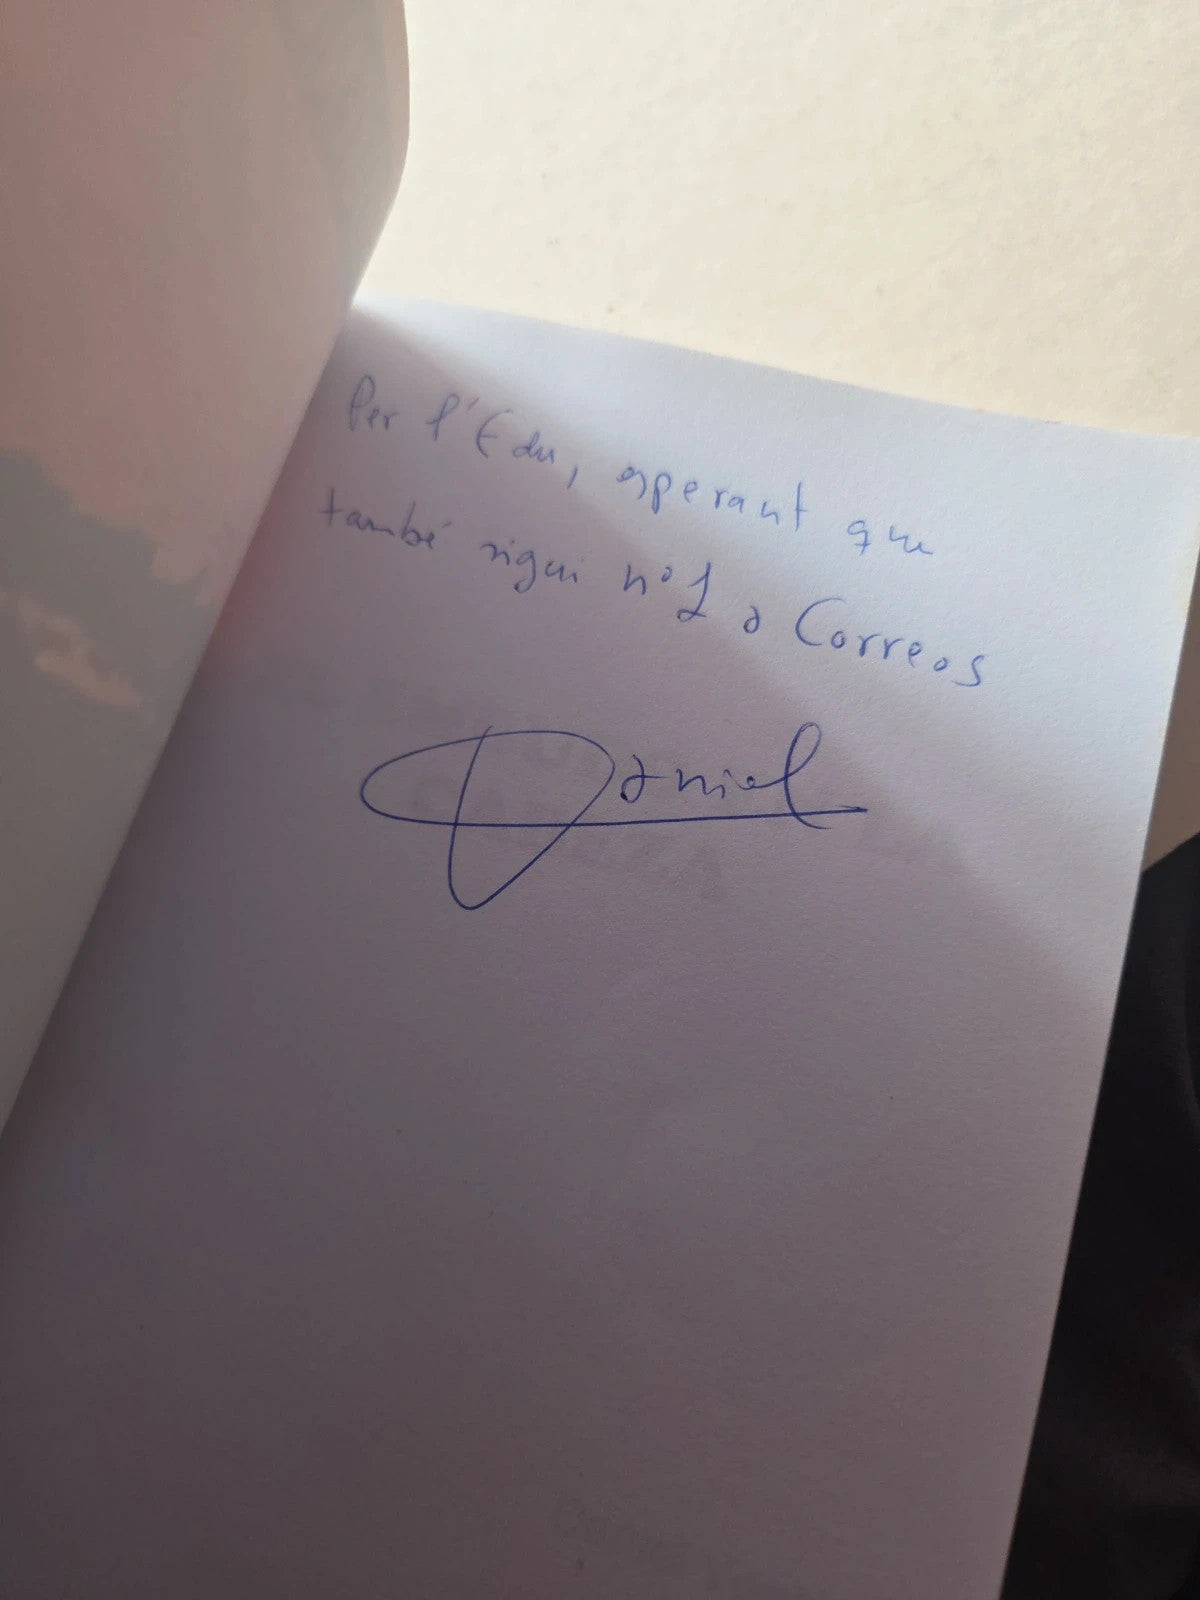 Per l'Edu, esperant que
també sigui nº1 a Correos
Daniel